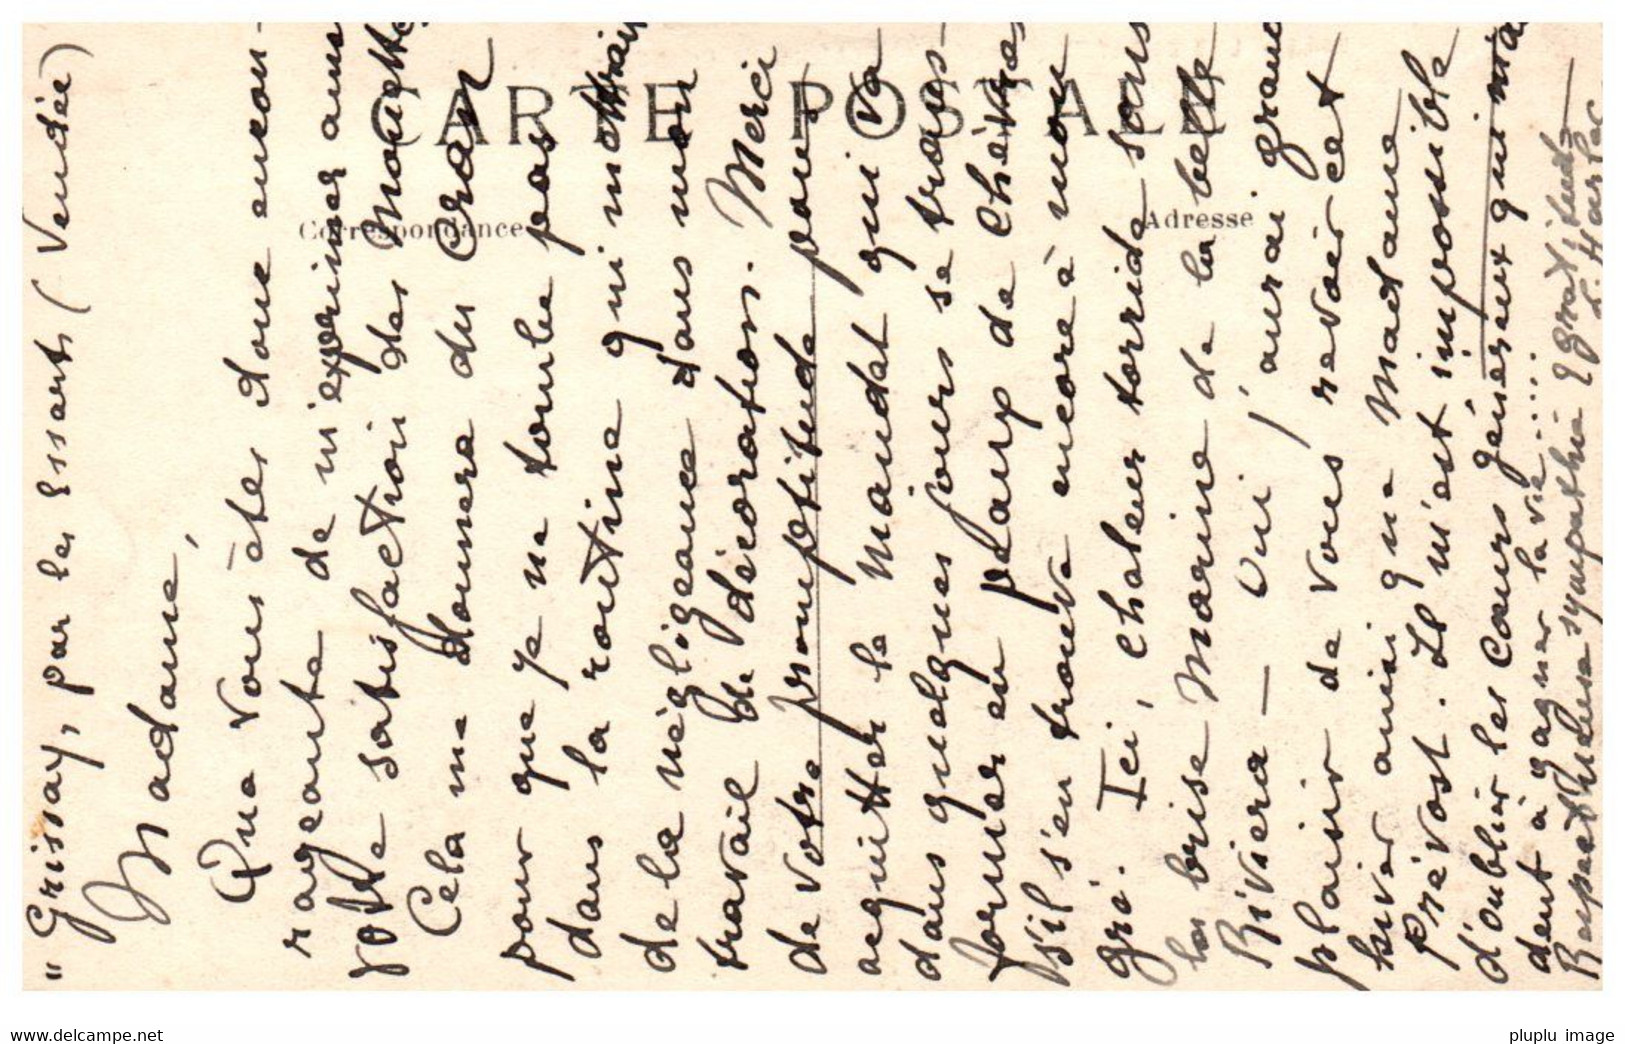 "Grissay, par les Essarts (Vendée)
Madame,
Que vous êtes donc encou-
rageante de m'exprimer ainsi
votre satisfaction des Mouettes
Cela me donnera du Cran
pour que je ne tombe pas
dans la routine qui mettrait
de la négligeance dans mon
travail de décoration. Merci
de votre promptitude pour
acquitter le Mandat qui va
dans quelques jours se trans-
former en peaux de Chèvres
s'il s'en trouve encore à mon
gré. Ici, chaleur torride sans
la brise Marine de la belle
Riviera — Oui, j'aurai grand
plaisir de vous revoir cet
hiver ainsi que Madame
Prévost. Il m'est impossible
d'oublier les Cœurs généreux qui m'ai
dent à gagner la vie....
Respectueuse sympathie & gratitude
CARTE POSTALE
Correspondance
Adresse
www.delcampe.net
pluplu image